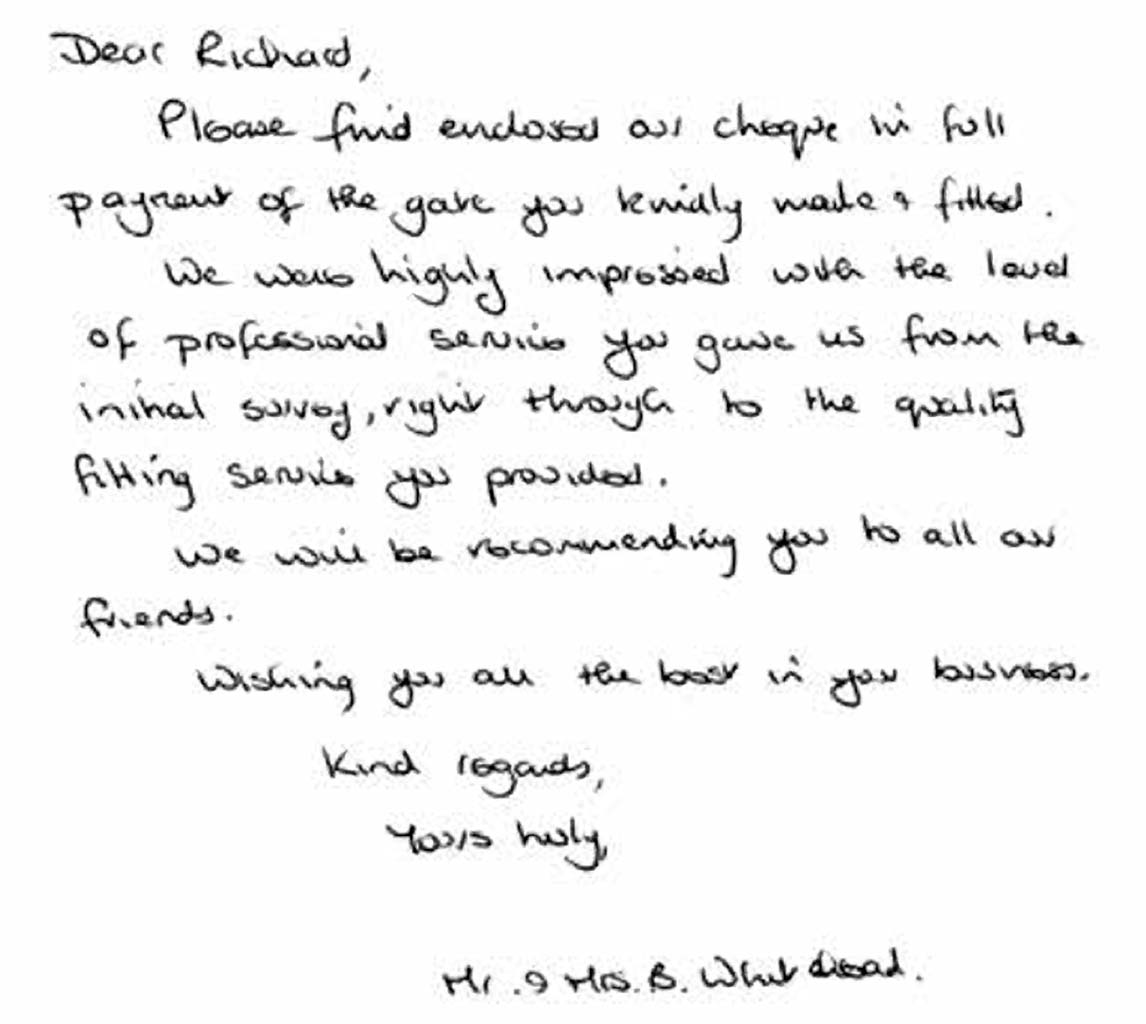 Dear Richard,
Please find enclosed our cheque in full
payment of the gate you kindly made & fitted.
We were highly impressed with the level
of professional service you gave us from the
initial survey, right through to the quality
fitting service you provided.
We will be recommending you to all our
friends.
Wishing you all the best in your business.
Kind regards,
Yours truly,
Mr. & Mrs. B.